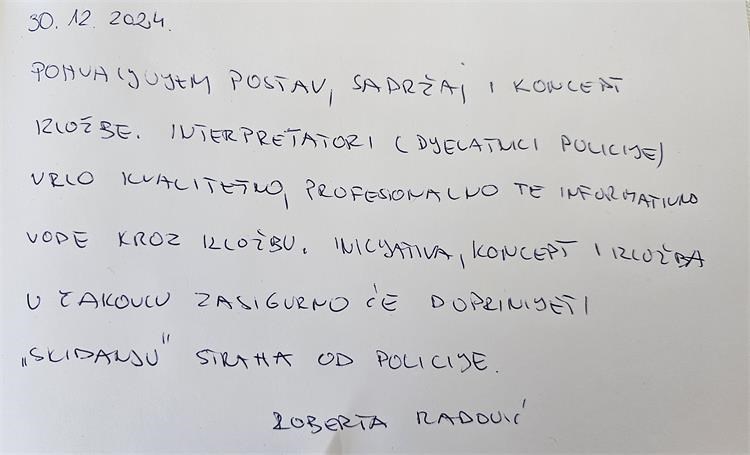 30. 12. 2024.
POHVALJUJEM POSTAV, SADRŽAJ I KONCEPT
IZLOŽBE. INTERPRETATORI (DJELATNICI POLICIJE)
VRLO KVALITETNO, PROFESIONALNO TE INFORMATIVNO
VODE KROZ IZLOŽBU. INICIJATIVA, KONCEPT I IZLOŽBA
U ČAKOVCU ZASIGURNO ĆE DOPRINIJETI
„SKIDANJU" STRAHA OD POLICIJE.
ROBERTA RADOVIĆ